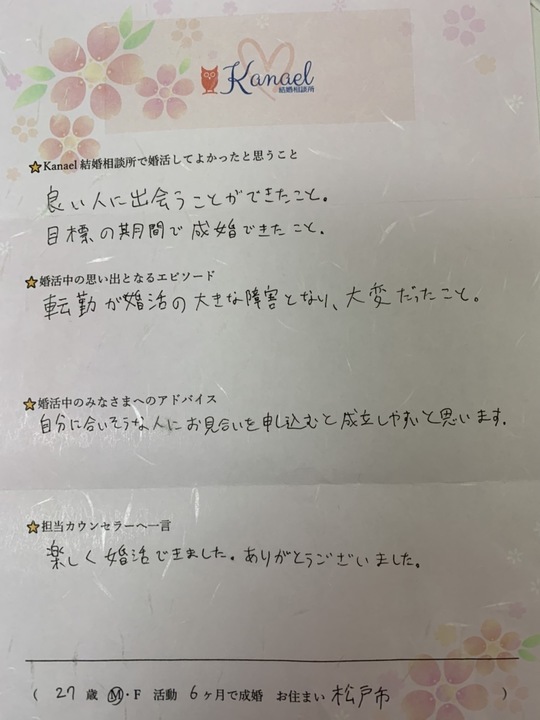 Kanael
結婚相談所
★Kanael 結婚相談所で婚活してよかったと思うこと
良い人に出会うことができたこと。
目標の期間で成婚できたこと。
★婚活中の思い出となるエピソード
転勤が婚活の大きな障害となり、大変だったこと。
★婚活中のみなさまへのアドバイス
自分に合いそうな人にお見合いを申し込むと成立しやすいと思います。
★担当カウンセラーへ一言
楽しく婚活できました。ありがとうございました。
( 27 歳 M・F 活動 6 ヶ月で成婚 お住まい 松戸市 )